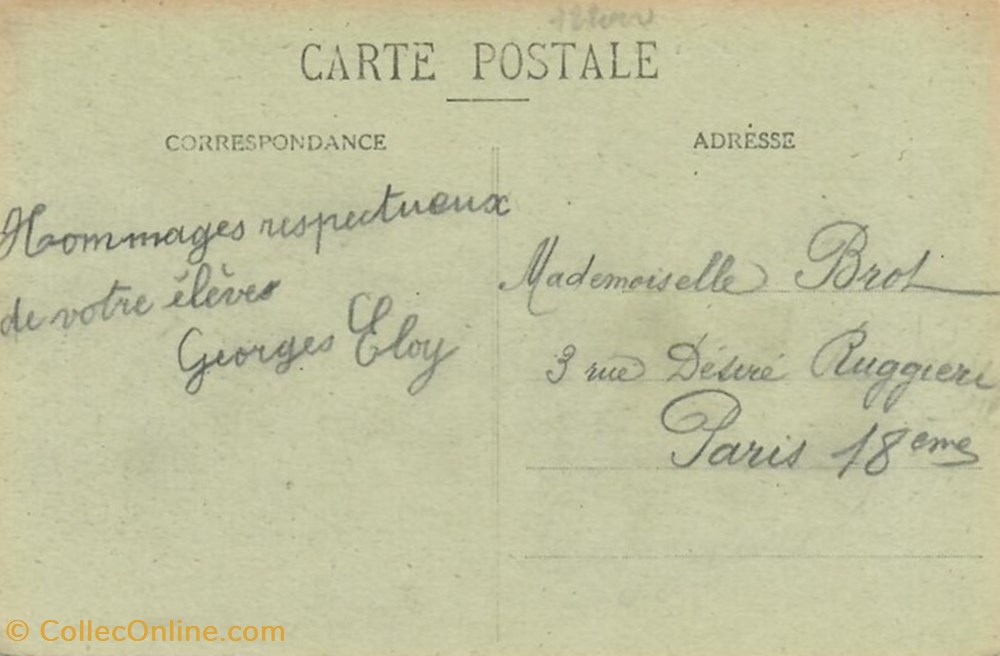 CARTE POSTALE
CORRESPONDANCE
Hommages respectueux
de votre élève
Georges Eloy
ADRESSE
Mademoiselle Brot
3 rue Désiré Ruggieri
Paris 18ème
© CollecOnline.com